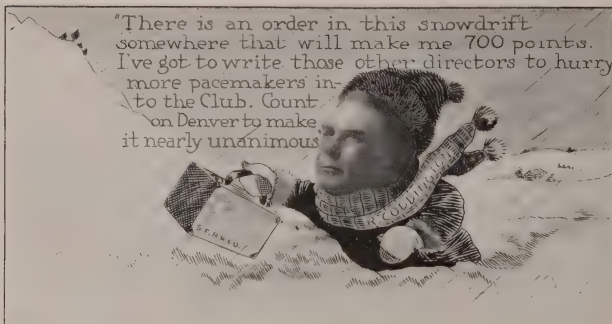 "There is an order in this snowdrift
somewhere that will make me 700 points.
I've got to write those other directors to hurry
more pacemakers in-
to the Club. Count
on Denver to make
it nearly unanimous